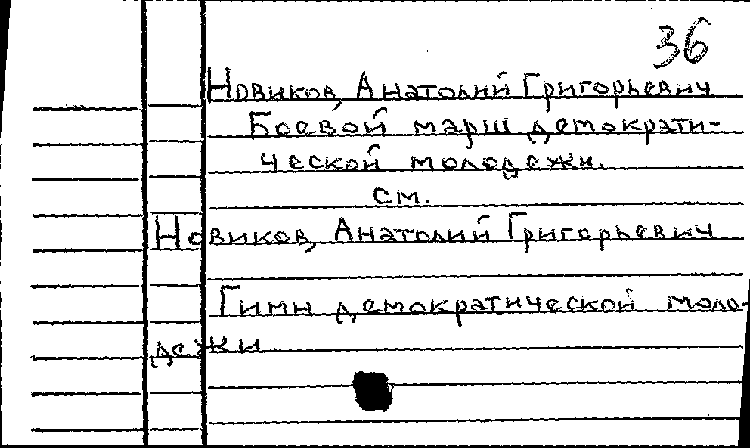 36
Новиков, Анатолий Григорьевич
Боевой марш демократи-
ческой молодежи.
см.
Новиков, Анатолий Григорьевич
Гимн демократической моло-
дежи